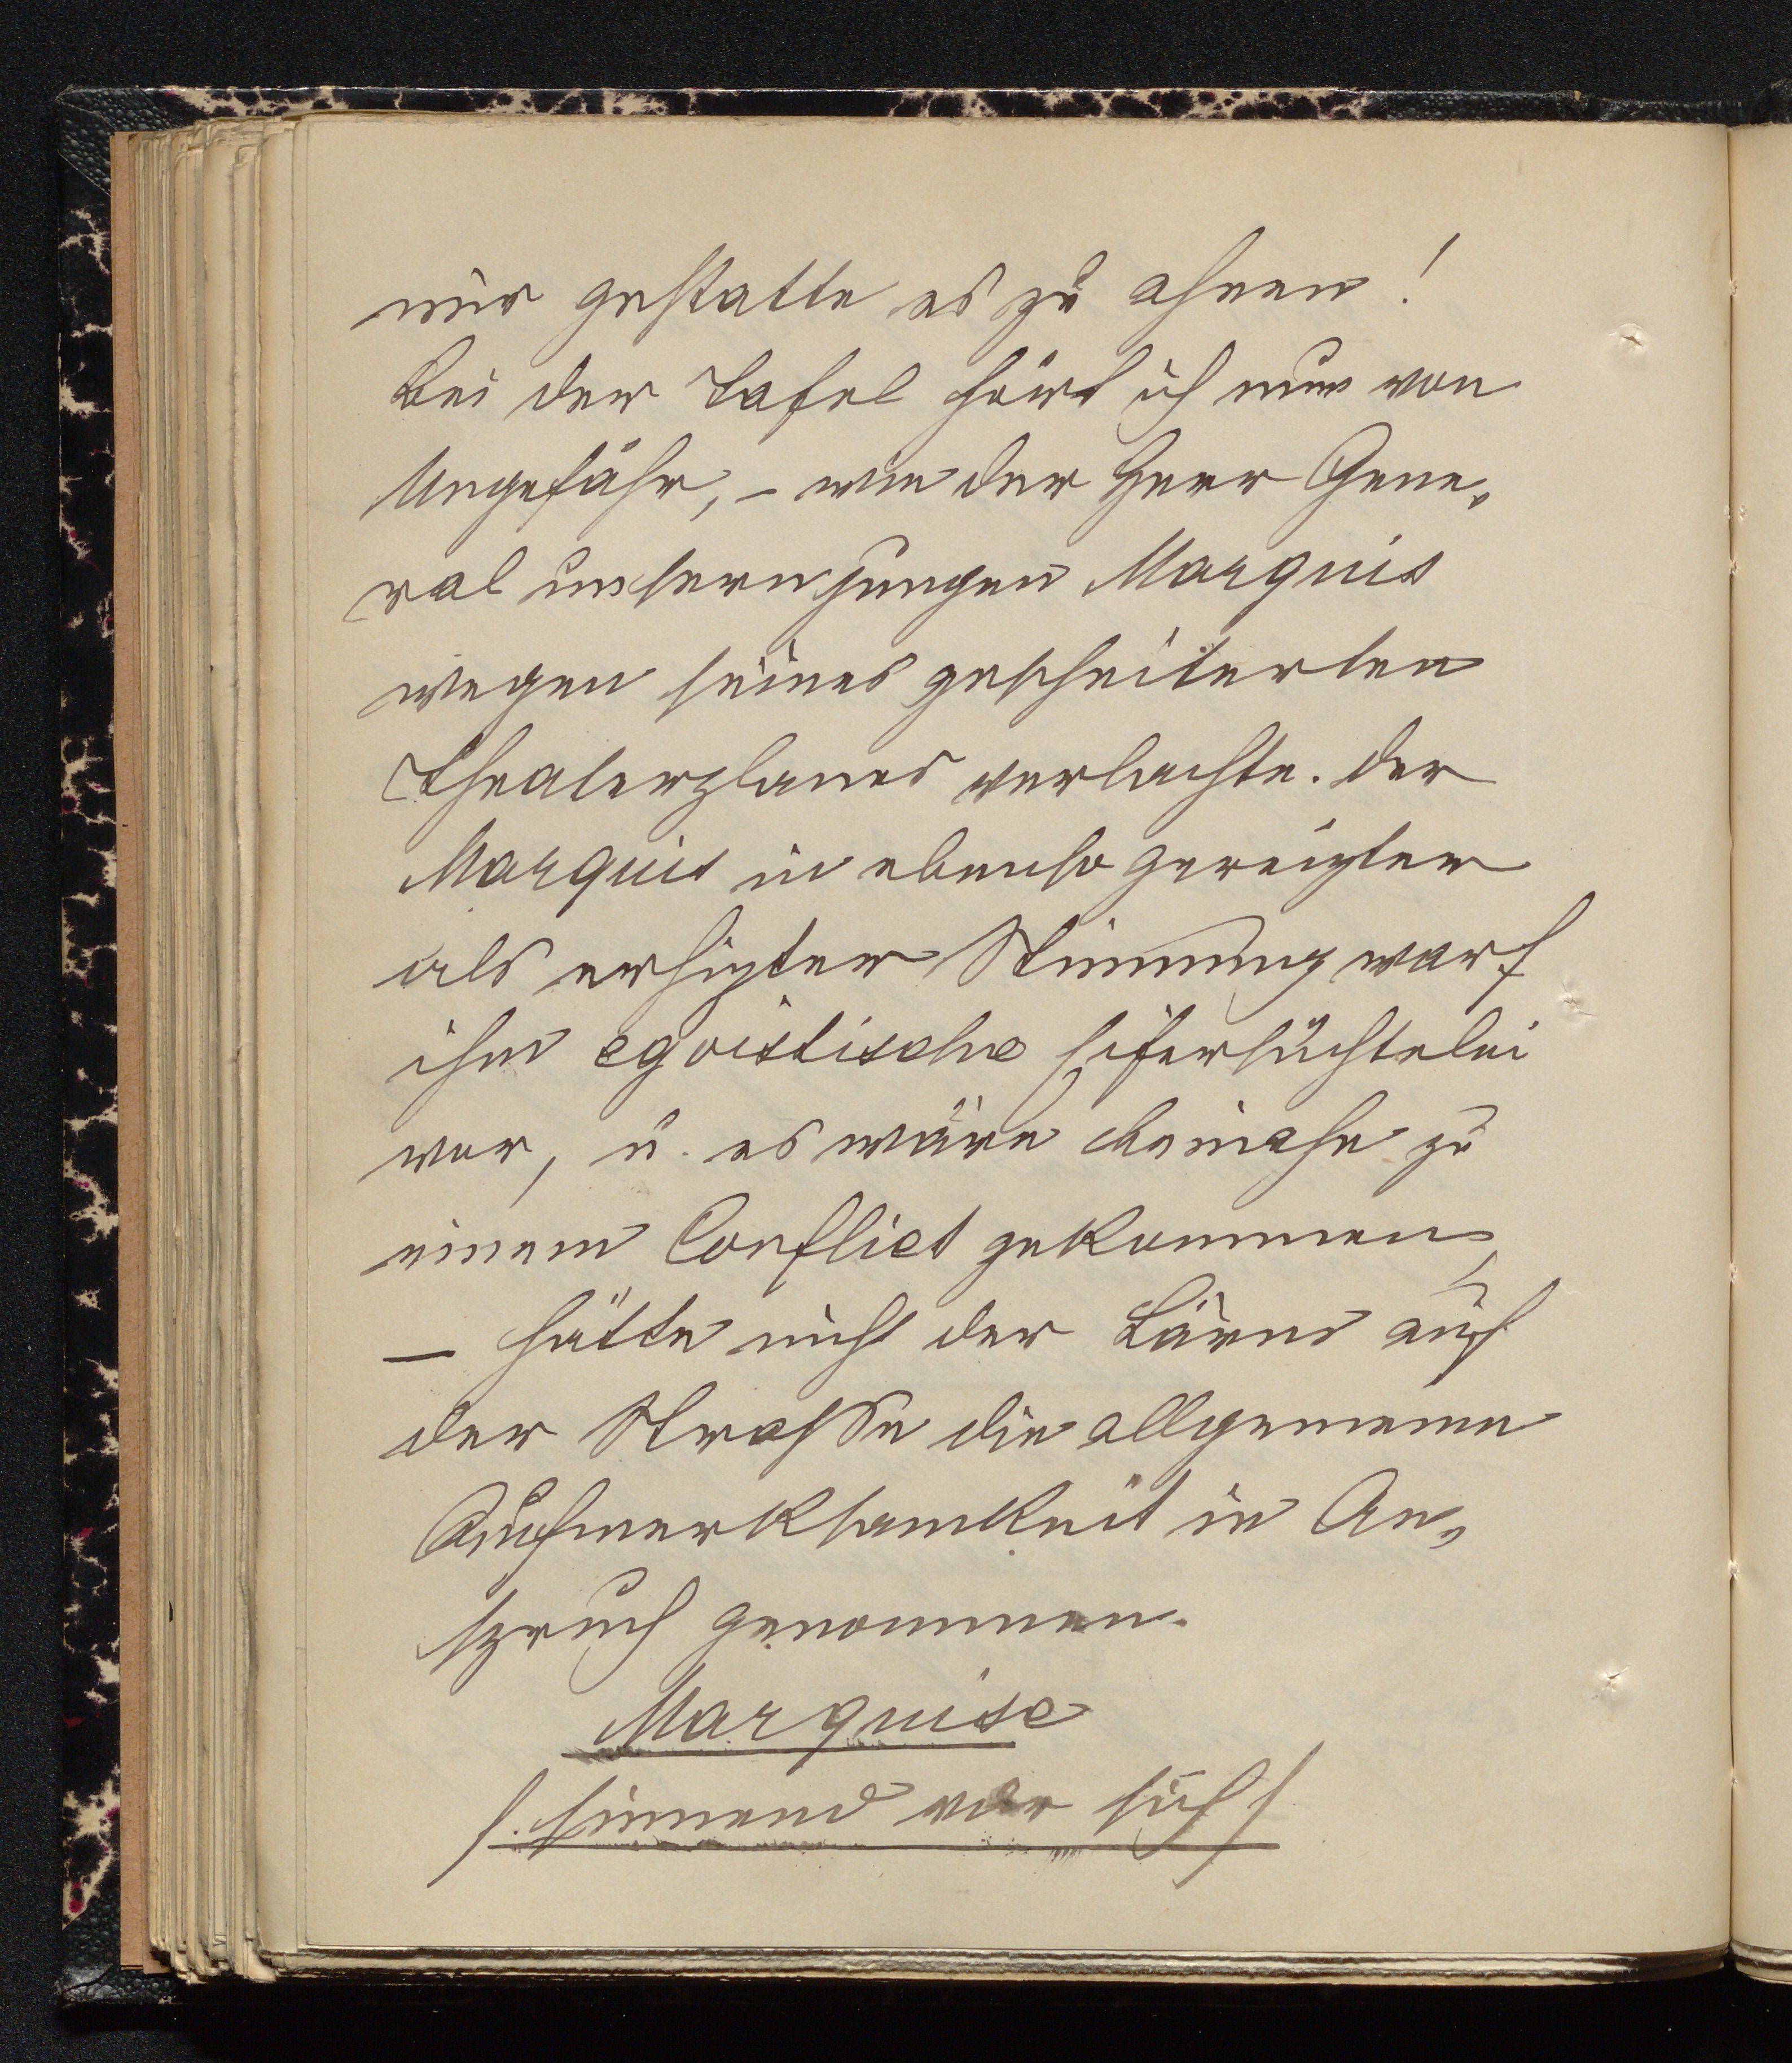 mir gestatte es zu ahnen!
Bei der Tafel hört ich nur von
Ungefähr, – wie der Herr Gene„
ral unsern jungen Marquis
wegen seines gescheiterten
Theaterplanes verlachte. Der
Marquis in ebenso gereizter
als erhizter Stimmung warf
ihm egoistische Eifersüchtelei
vor, u. es wäre beinahe zu
einem Conflict gekommen,
– hätte nicht der Lärm auf
der Strasse die allgemeine
Aufmerksamkeit in An„
spruch genommen.
Marquise
/. sinnend vor sich /